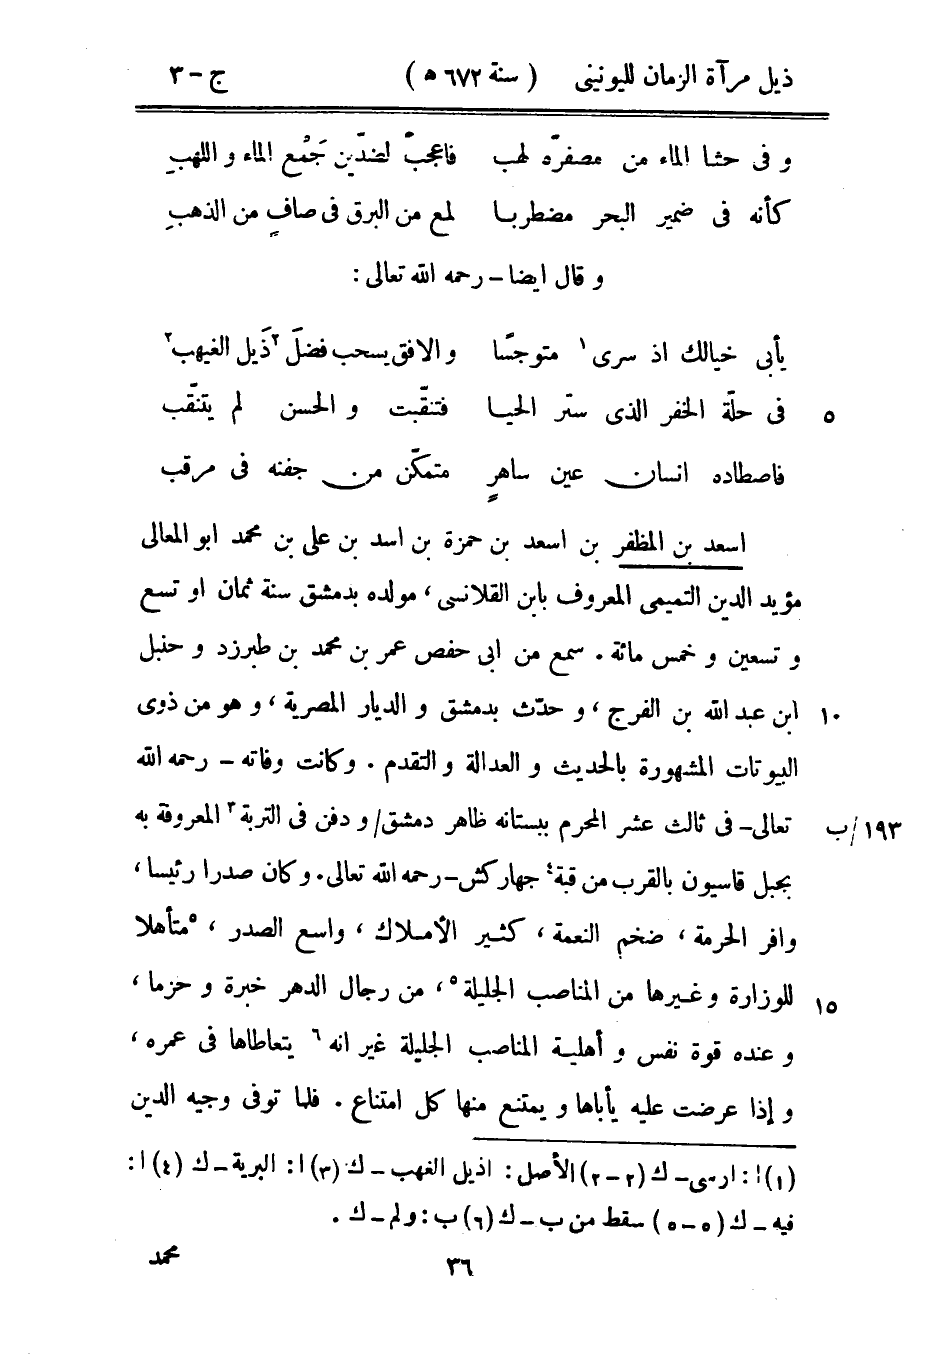 ذيل مرآة الزمان لليونينى ( سنة ٦٧٢ ه ) ج – ٣
و فى حشا الماء من مصفرّه لهب فاعجبْ لضدّين جَمُع الماء و اللهبِ
كأنه فى ضمير البحر مضطربا لمع من البرق فى صافٍ من الذهبِ
و قال ايضا – رحمه الله تعالى :
يأبى خيالك اذ سرى ١ متوجسًا و الافق يسحب فضلَ ٢ ذَيل الغيهب ٢
٥ فى حلّة الخفر الذى ستر الحيا فتنقّبت و الحسن لم يتنقّب
فاصطاده انسان عين ساهرٍ متمكّن من جفنه فى مرقب
اسعد بن المظفر بن اسعد بن حمزة بن اسد بن على بن محمد ابو المعالى
مؤيد الدين التميمى المعروف بابن القلانسى ، مولده بدمشق سنة ثمان او تسع
و تسعين و خمس مائة . سمع من ابى حفص عمر بن محمد بن طبرزد و حنبل
١٠ ابن عبد الله بن الفرج ، و حدّث بدمشق و الديار المصرية ، و هو من ذوى
البيوتات المشهورة بالحديث و العدالة و التقدم . وكانت وفاته – رحمه الله
١٩٣ /ب تعالى – فى ثالث عشر المحرم ببستانه ظاهر دمشق / و دفن فى التربة ٣ المعروفة به
بجبل قاسيون بالقرب من قبة ٤ جهاركش – رحمه الله تعالى . وكان صدرا رئيسا ،
وافر الحرمة ، ضخم النعمة ، كثير الأملاك ، واسع الصدر ، ٥ متأهلا
١٥ للوزارة و غيرها من المناصب الجليلة ٥ ، من رجال الدهر خبرة و حزما ،
و عنده قوة نفس و أهلية المناصب الجليلة غير انه ٦ يتعاطاها فى عمره ،
و إذا عرضت عليه يأباها و يمتنع منها كل امتناع . فلما توفى وجيه الدين
(١) ا : ارسى – ك (٢ – ٢) الأصل : اذيل الغهب – ك (٣) ا : البرية – ك (٤) ا :
فيه – ك (٥ – ٥) سقط من ب – ك (٦) ب : ولم – ك .
٣٦ محمد